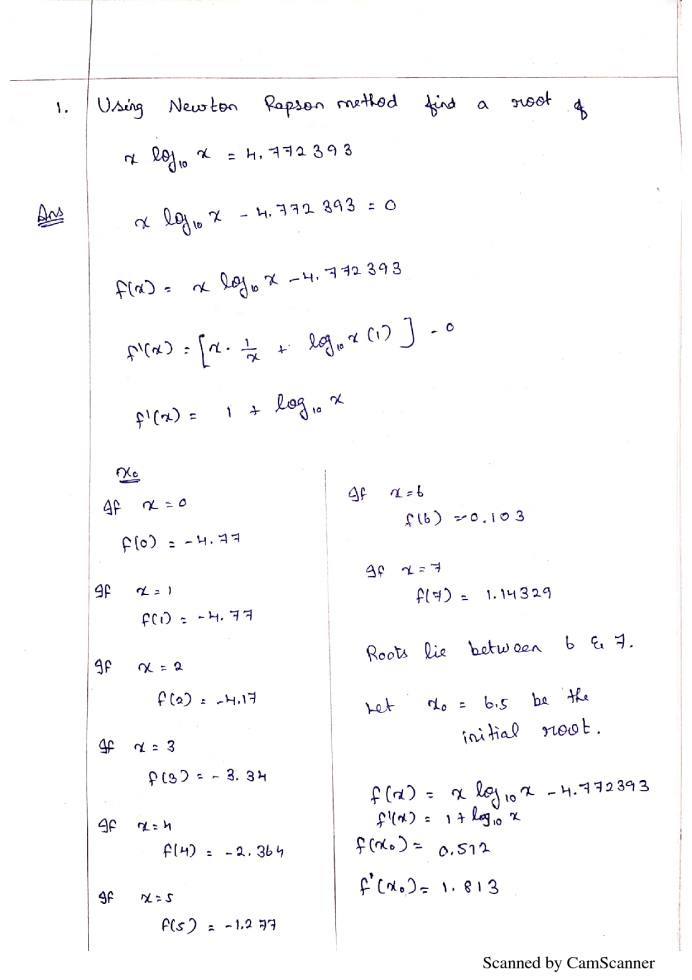 1. Using Newton Rapson method find a root of
x log₁₀ x = 4.772393
Ans
x log₁₀ x - 4.772393 = 0
f(x) = x log₁₀ x - 4.772393
f'(x) = [x. 1/x + log₁₀ x (1)] - 0
f'(x) = 1 + log₁₀ x
x₀
If x = 0
f(0) = -4.77
If x = 1
f(1) = -4.77
If x = 2
f(2) = -4.17
If x = 3
f(3) = -3.34
If x = 4
f(4) = -2.364
If x = 5
f(5) = -1.277
If x = 6
f(6) = -0.103
If x = 7
f(7) = 1.14329
Roots lie between 6 & 7.
Let x₀ = 6.5 be the
initial root.
f(x) = x log₁₀ x - 4.772393
f'(x) = 1 + log₁₀ x
f(x₀) = 0.512
f'(x₀) = 1.813
Scanned by CamScanner